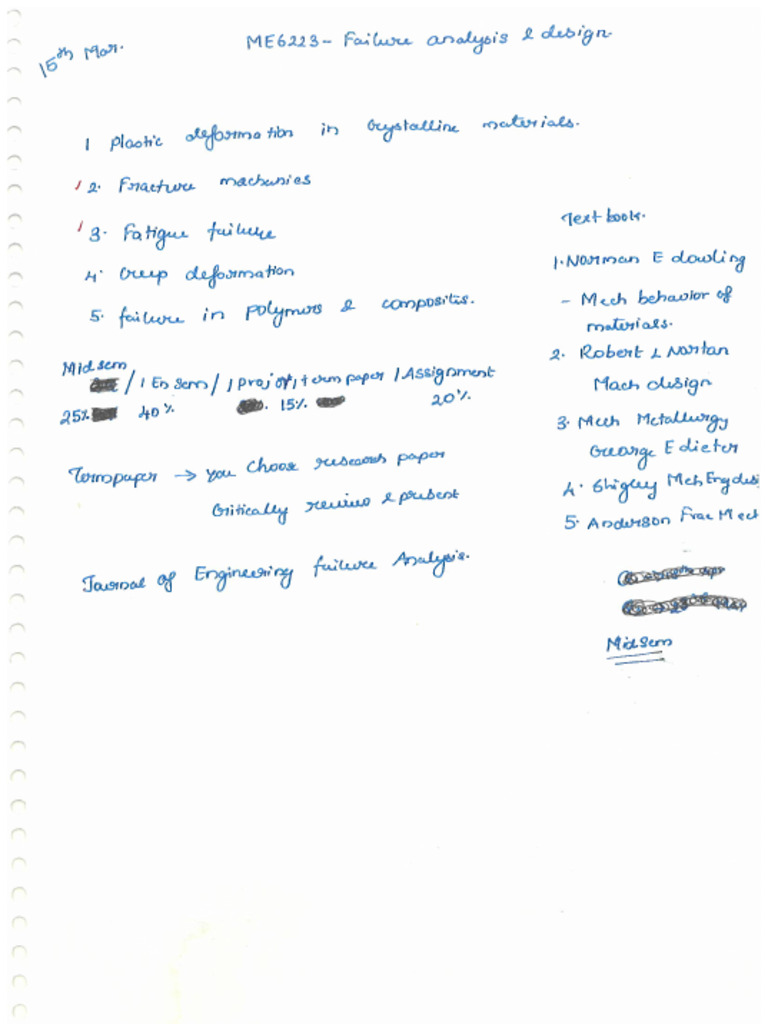 15th Mar.
ME6223 - Failure analysis & design.
1 Plastic deformation in Crystalline materials.
2. Fracture mechanics
3. Fatigue failure
4. Creep deformation
5. failure in polymers & composites.
Mid sem
/ 1 En sem / 1 Project, term paper / Assignment
25% 40% 15% 20%
Termpaper → You choose research paper
Critically review & present
Journal of Engineering failure Analysis.
Text book.
1. Norman E dowling
- Mech behavior of
materials.
2. Robert L Nortan
Mach design
3. Mech Metallurgy
George E dieter
4. Shigley Mech Eng desi
5. Anderson Frac Mect
Mid Sem